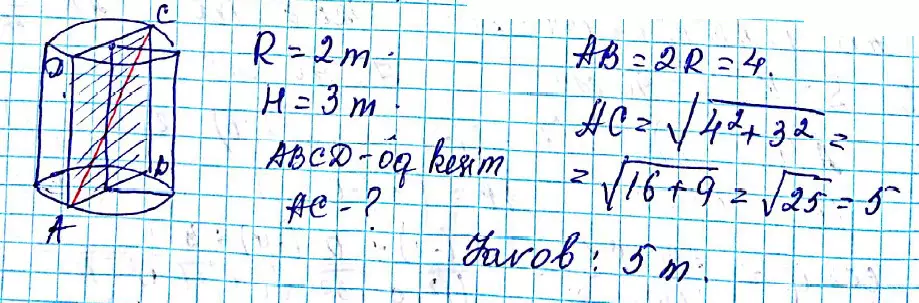 C
D
B
A
R = 2 m.
H = 3 m.
ABCD - ôq kesim
AC - ?
AB = 2R = 4.
AC = √4² + 3² =
= √16 + 9 = √25 = 5
Javob : 5 m.